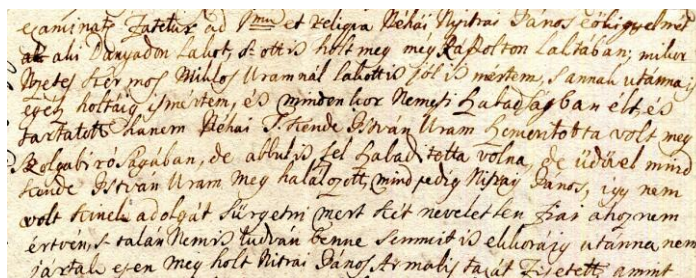 examinatq Fatetur ad 1mum et reliqva Néhai Nyitrai János eö kigyelmét
a ki Danyádon lakot, s ott is holt meg meg Rápolton laktában; mikor
Szermos Miklos Uramnál lakott is jól is mértem, s annak utánna is
egész holtáig ismertem, és minden kor Nemesi szabadságban élt és
tartatott hanem Néhai T. Kende István Uram Hementotta volt meg
Szolgabíróságában, de abbul is fel szabadította volna, de üdövel mind
Kende István Uram meg halálozott, mind pedig Nitray János, igy nem
volt kinek a dolgát sürgetni mert két neveletlen fiai ahoz nem
értvén, s talán Nemis tudván benne semmit is ekkoráig utánna nem
jártak ezen meg holt Nitrai János Armalis taxát fizetett, amint